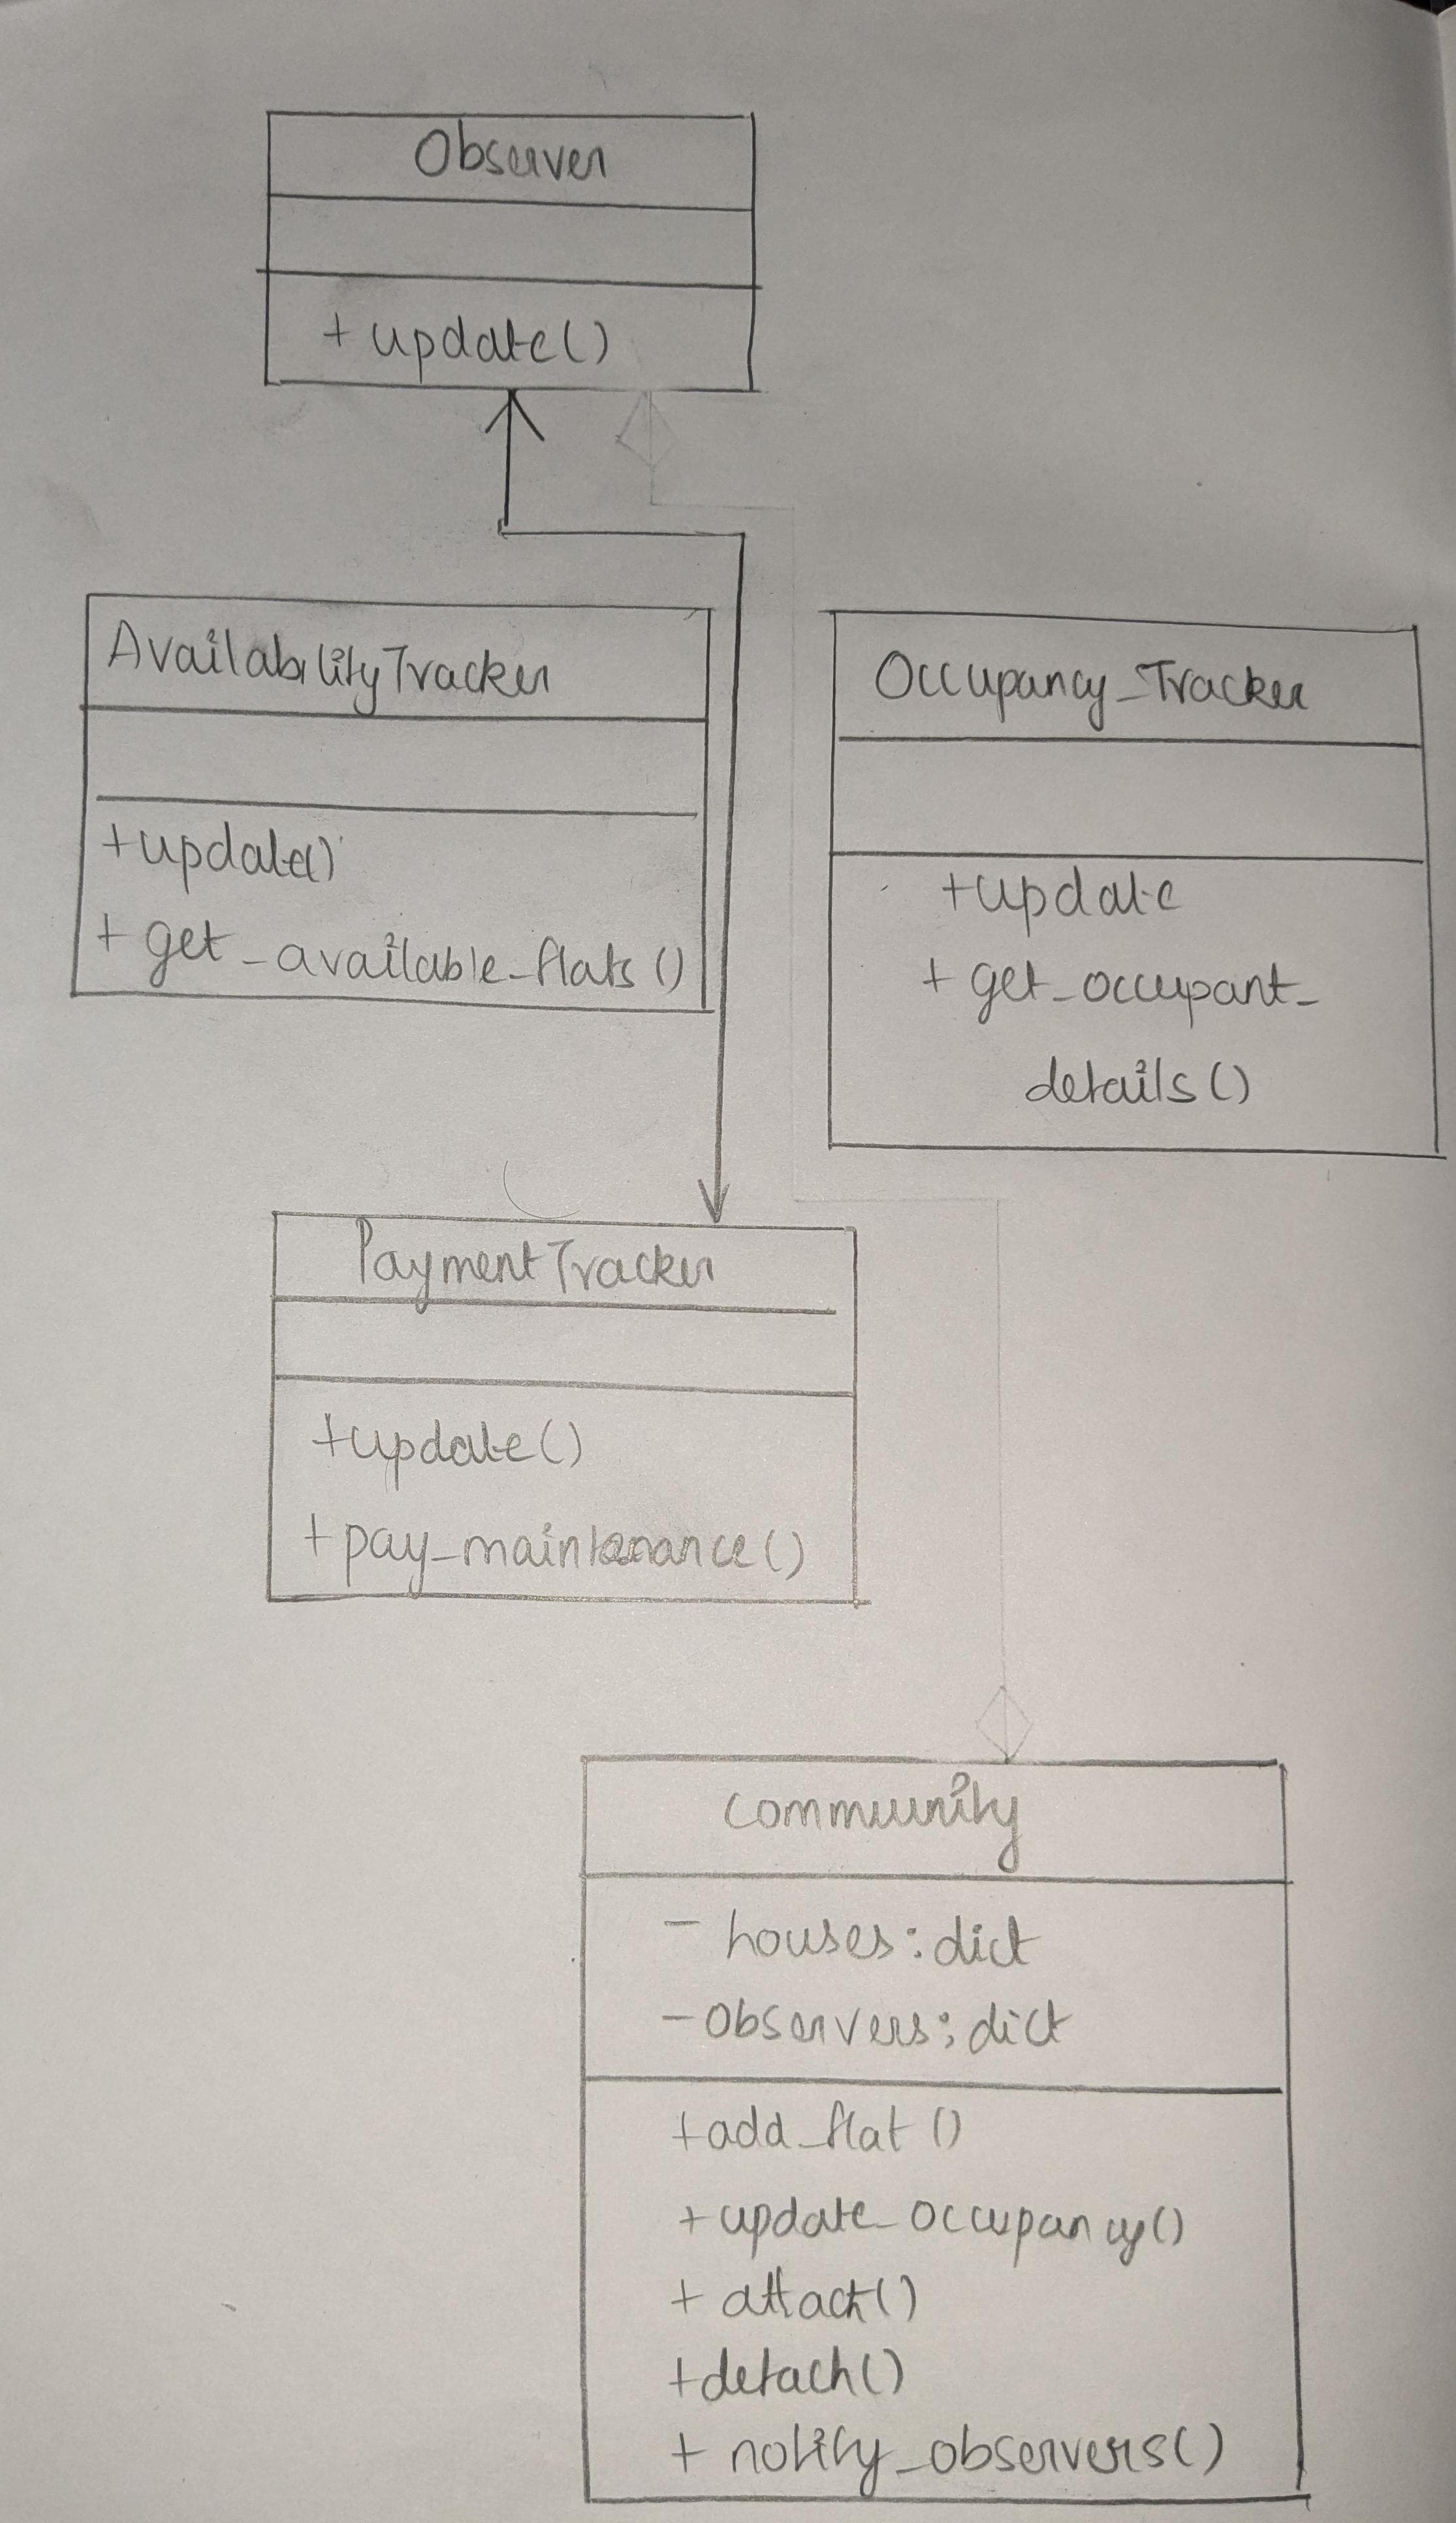 Observer
+ update()
AvailabilityTracker
+update()
+ get_available_flats()
Occupancy_Tracker
+update
+ get_occupant_
details()
PaymentTracker
+update()
+pay_maintenance()
Community
- houses:dict
- observers:dict
+add_flat()
+update_occupancy()
+ attach()
+detach()
+ notify_observers()